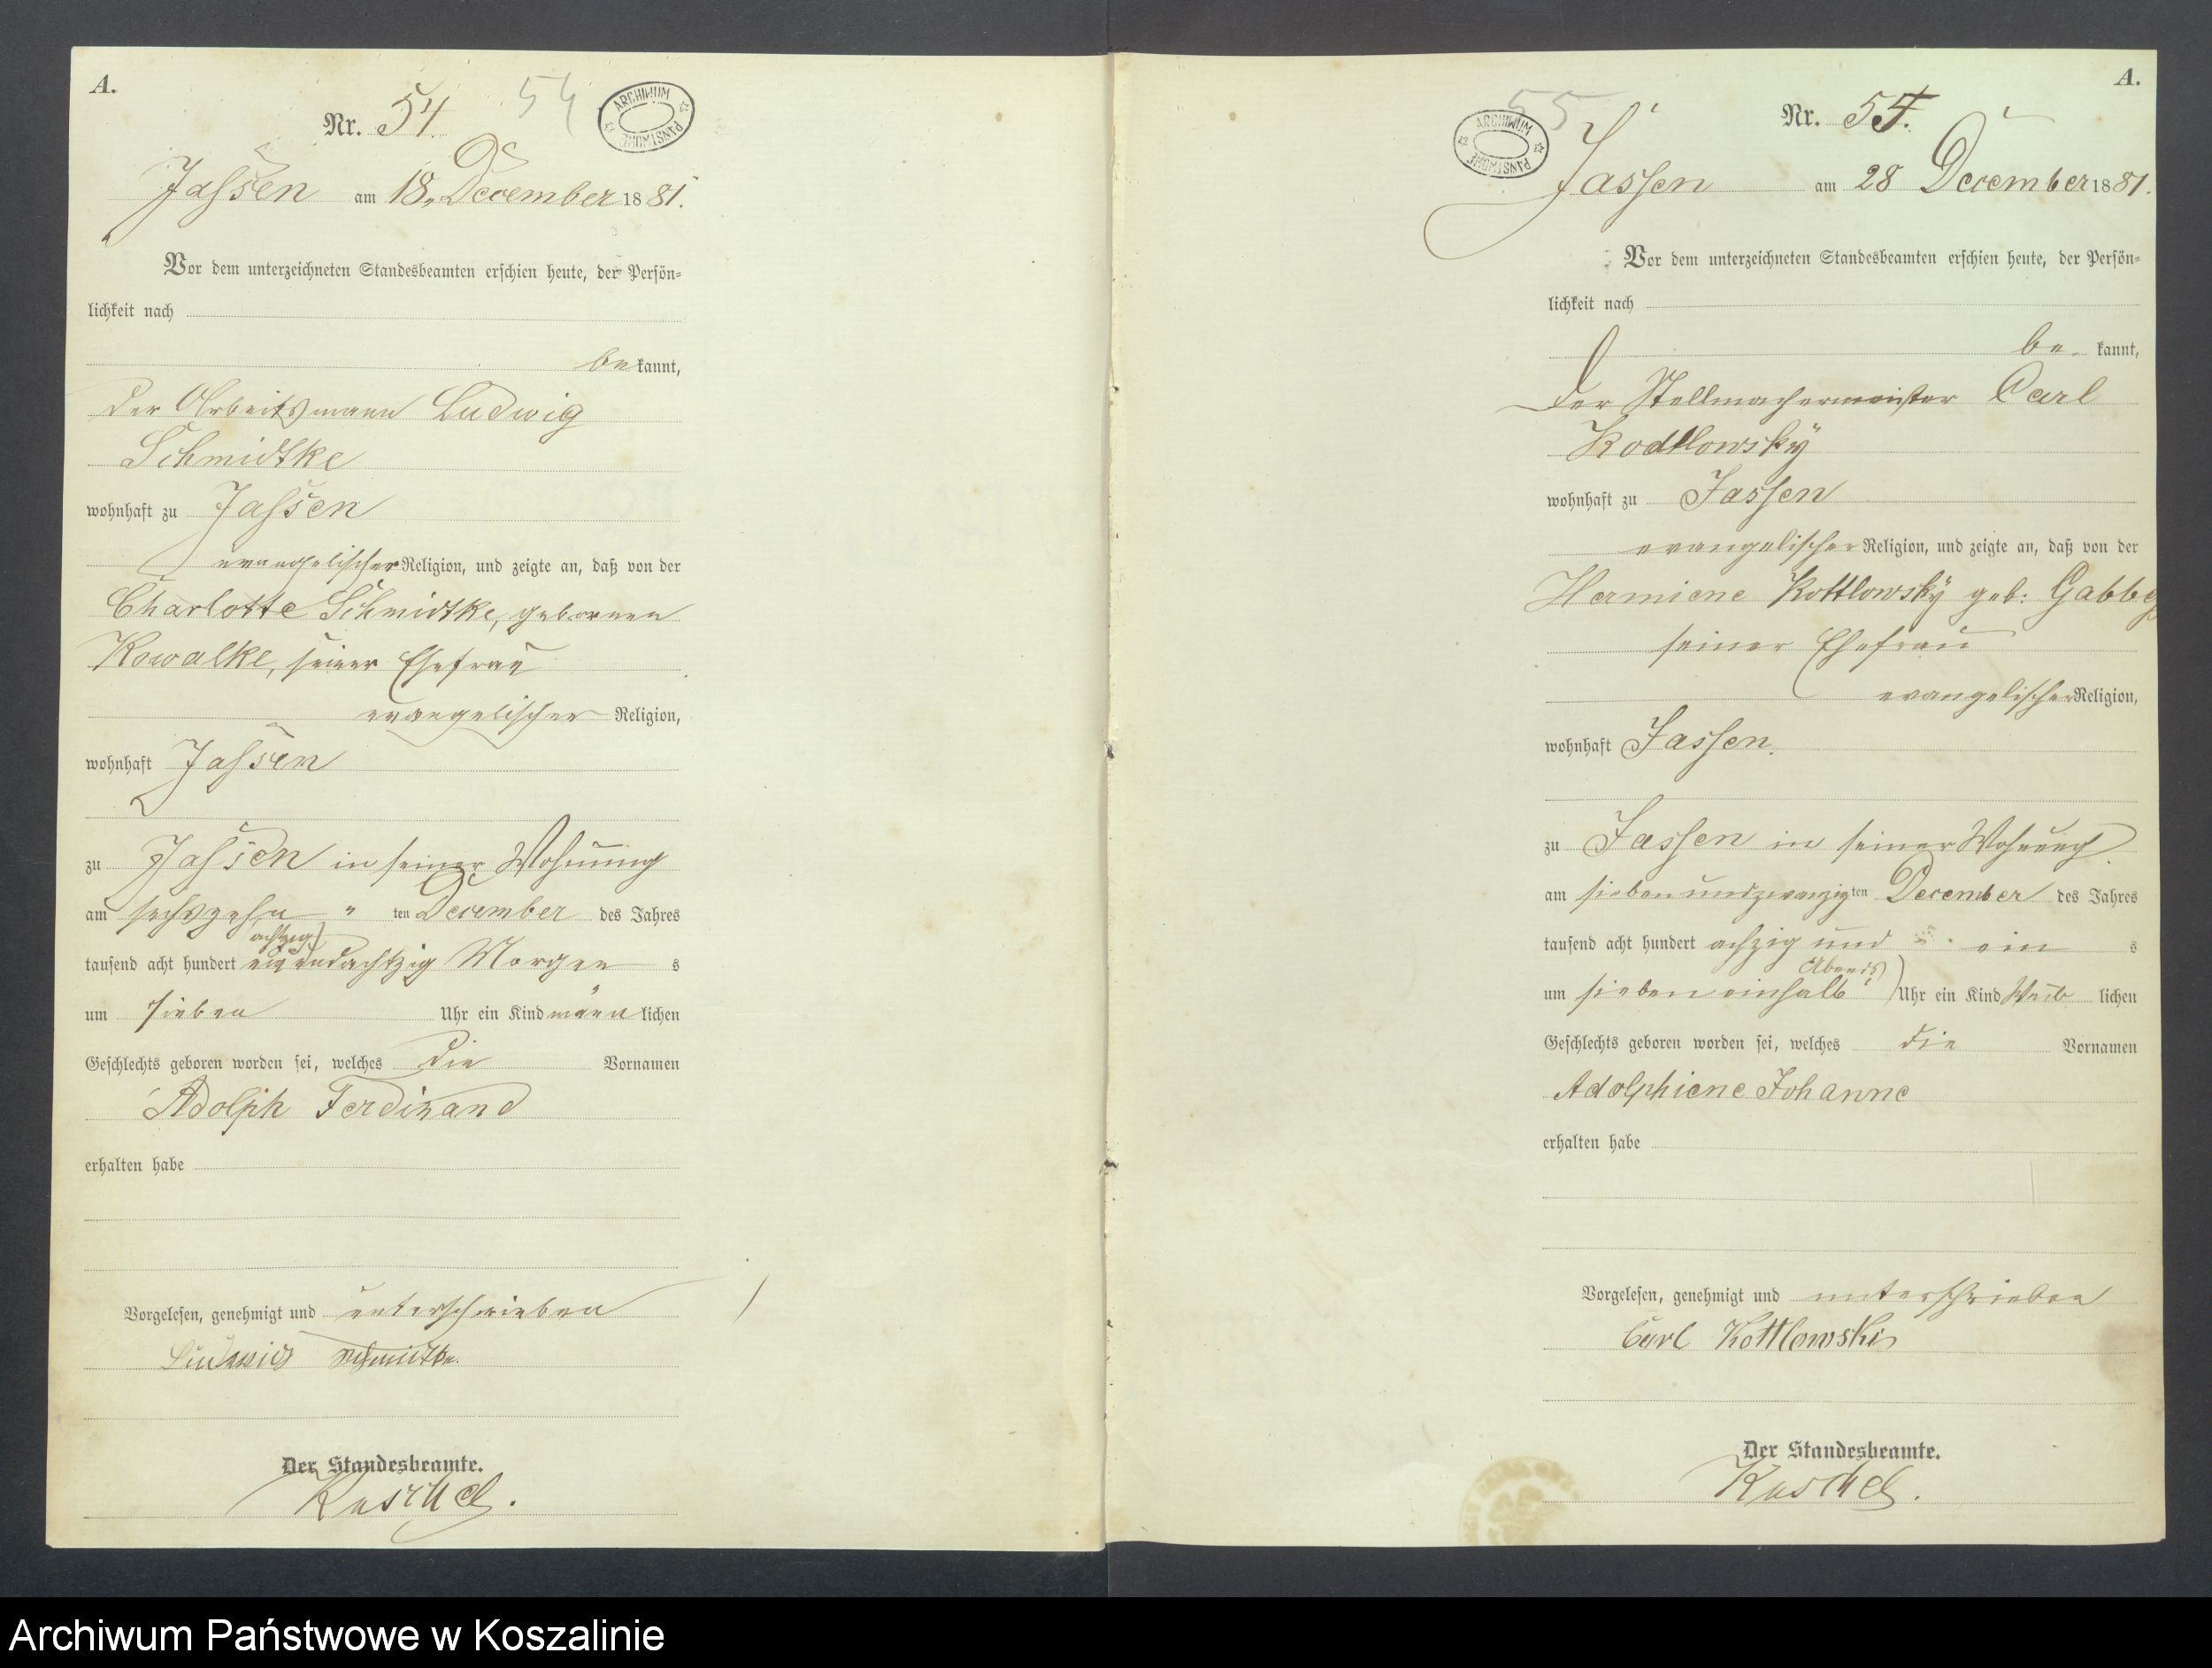 A.
Nr. 54.
54
ARCHIWUM PAŃSTWOWE
Jassen am 18. December 1881.
Vor dem unterzeichneten Standesbeamten erschien heute, der Persön=
lichkeit nach
bekannt,
der Arbeitsmann Ludwig
Schmidtke
wohnhaft zu Jassen
evangelischer Religion, und zeigte an, daß von der
Charlotte Schmidtke, gebornen
Kowalke, seiner Ehefrau
evangelischer Religion,
wohnhaft Jassen
zu Jassen in seiner Wohnung
am sechszehn " ten December des Jahres
achtzig
tausend acht hundert einundachtzig Morgen s
um sieben Uhr ein Kind männlichen
Geschlechts geboren worden sei, welches die Vornamen
Adolph Ferdinand
erhalten habe
Vorgelesen, genehmigt und unterschrieben
Ludwig Schmidtke.
Der Standesbeamte.
Kuschel.
A.
Nr. 55.
55
ARCHIWUM PAŃSTWOWE
Jassen am 28 December 1881.
Vor dem unterzeichneten Standesbeamten erschien heute, der Persön=
lichkeit nach
be kannt,
der Stellmachermeister Carl
Kodtlowsky
wohnhaft zu Jassen
evangelischer Religion, und zeigte an, daß von der
Hermiene Kottlowsky geb: Gabbey
seiner Ehefrau
evangelischer Religion,
wohnhaft Jassen.
zu Jassen in seiner Wohnung
am siebenundzwanzigten December des Jahres
tausend acht hundert achzig und ein s
Abends
um sieben einhalb Uhr ein Kind Weiblichen
Geschlechts geboren worden sei, welches die Vornamen
Adolphiene Johanne
erhalten habe
Vorgelesen, genehmigt und unterschrieben
Carl Kottlowski
Der Standesbeamte.
Kuschel.
Archiwum Państwowe w Koszalinie